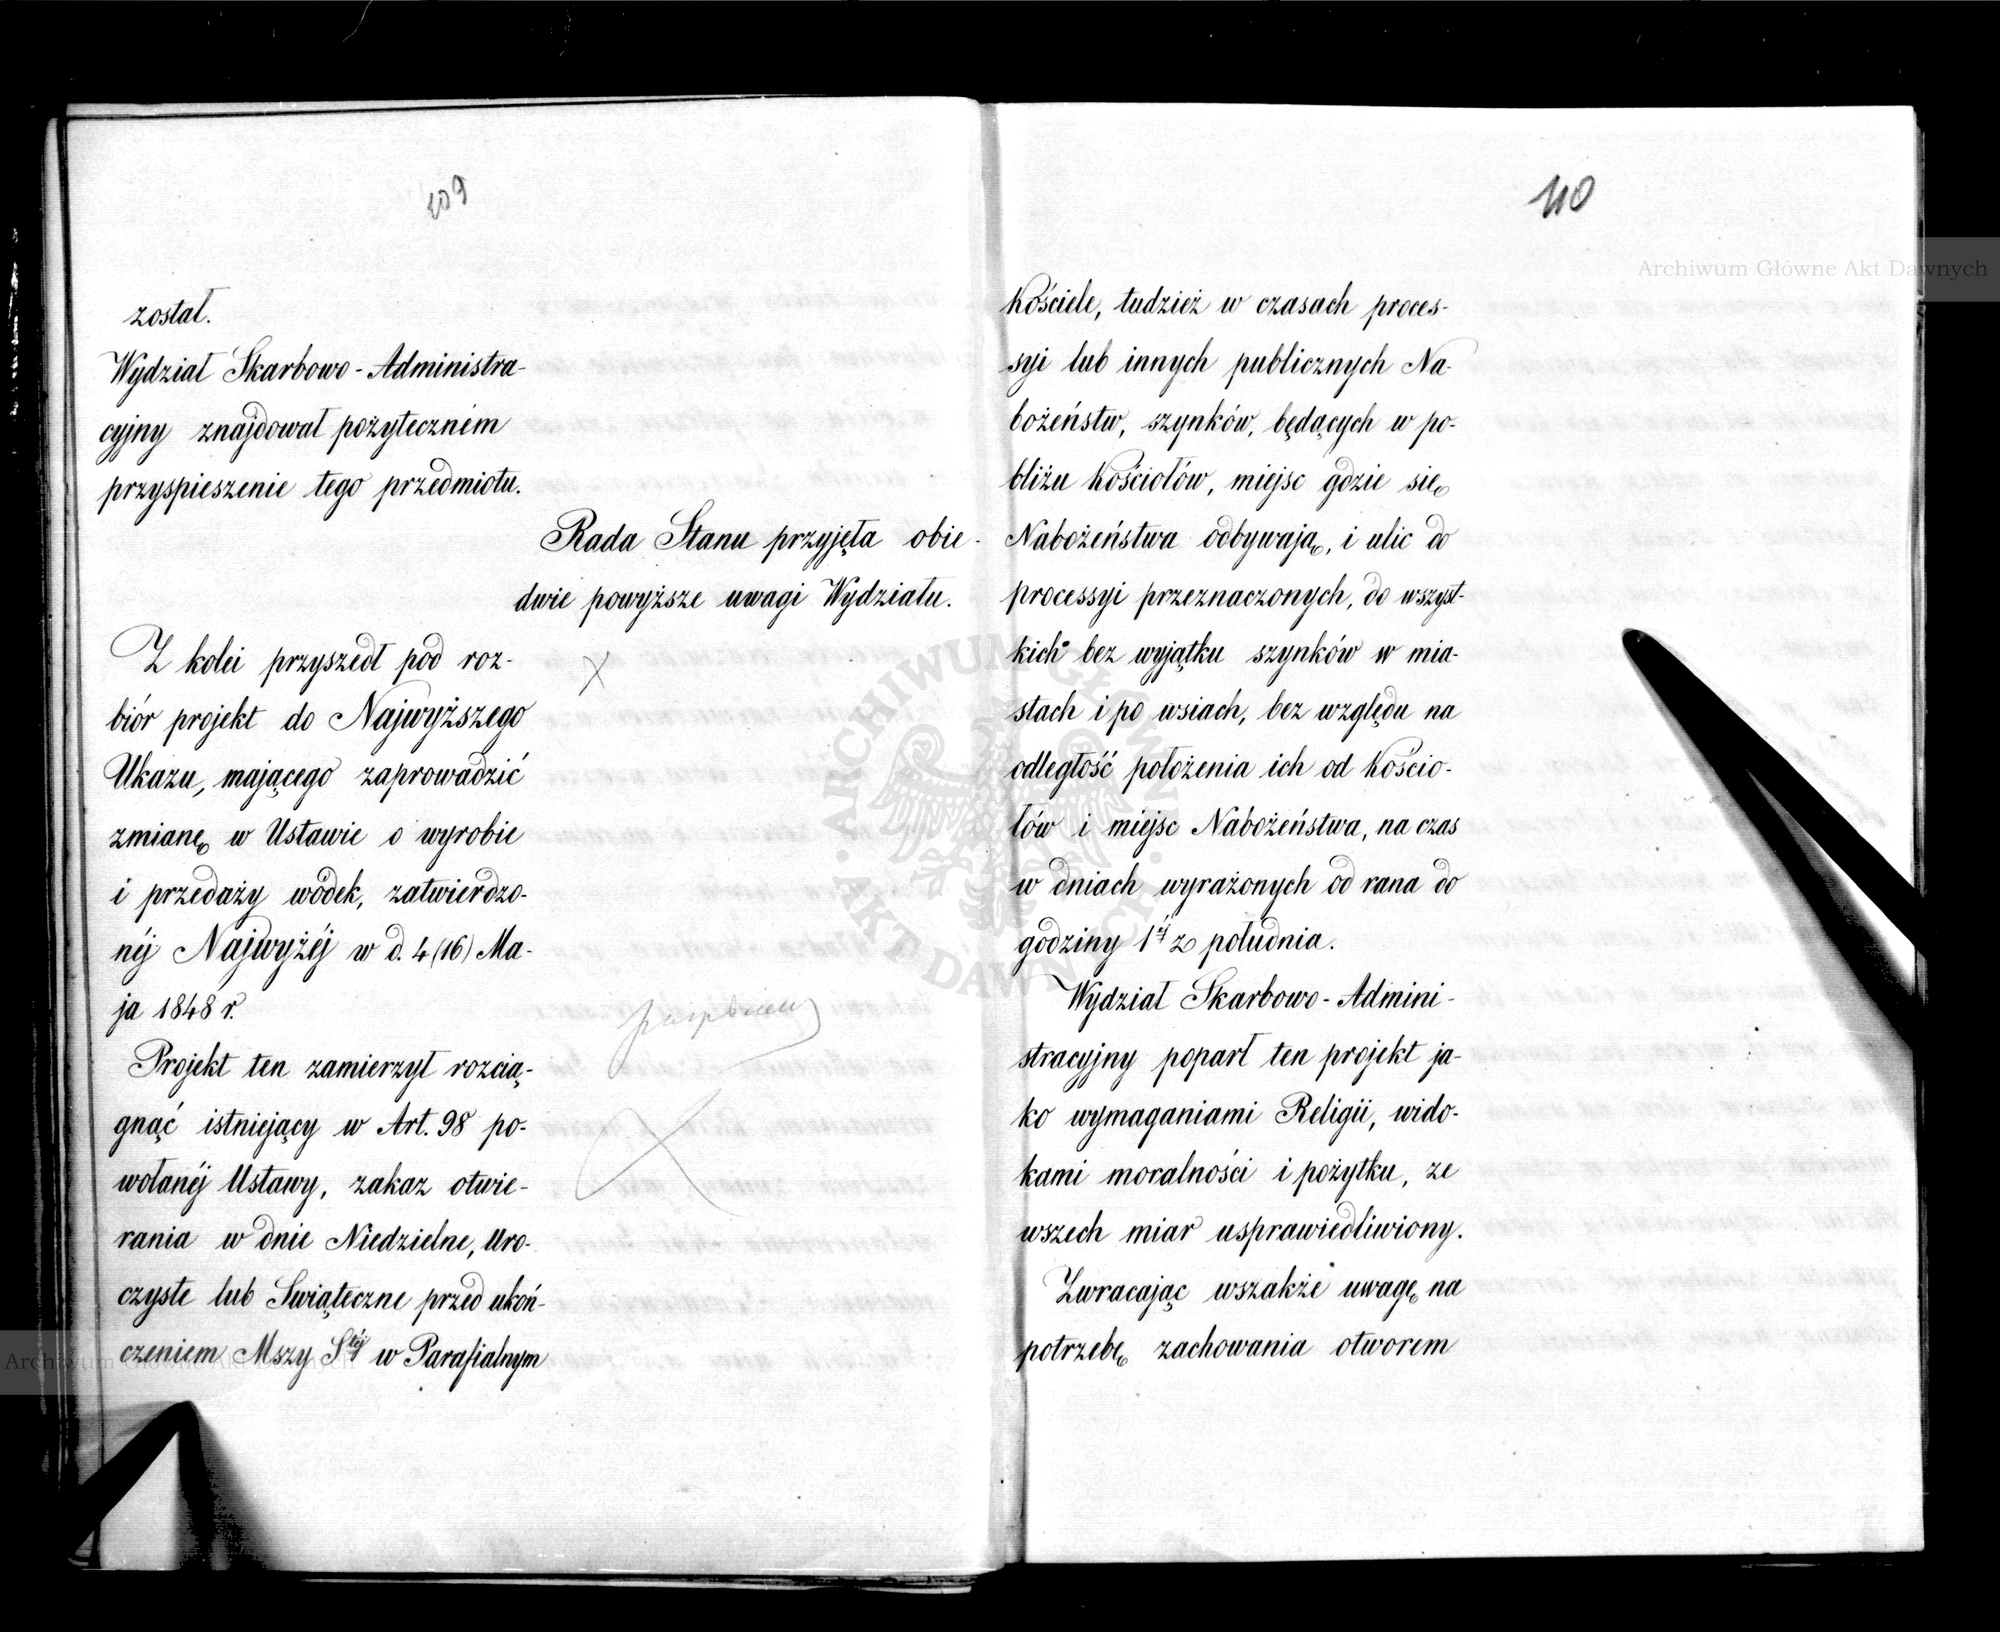 109
został.
Wydział Skarbowo-Administra-
cyjny znajdował pożyteczném
przyspieszenie tego przedmiotu.
Rada Stanu przyjęła obie-
dwie powyższe uwagi Wydziału.
Z kolei przyszedł pod roz-
biór projekt do Najwyższego
Ukazu, mającego zaprowadzić
zmianę w Ustawie o wyrobie
i przedaży wódek, zatwierdzo-
néj Najwyżéj w d. 4 (16) Ma-
ja 1848 r.
Projekt ten zamierzył rozcią-
gnąć istniejący w Art. 98 po-
wołanéj Ustawy, zakaz otwie-
rania w dnie Niedzielne, Uro-
czyste lub Swiąteczne przed ukoń-
czeniem Mszy Stéj w Parafialnym
110
Kościele, tudzież w czasach proces-
syi lub innych publicznych Na-
bożeństw, szynków, będących w po-
bliżu Kościołów, miejsc gdzie się
Nabożeństwa odbywają, i ulic do
processyi przeznaczonych, do wszyst-
kich bez wyjątku szynków w mia-
stach i po wsiach, bez względu na
odległość położenia ich od Kościo-
łów i miejsc Nabożeństwa, na czas
w dniach wyrażonych od rana do
godziny 1éj z południa.
Wydział Skarbowo-Admini-
stracyjny poparł ten projekt ja-
ko wymaganiami Religii, wido-
kami moralności i pożytku, ze
wszech miar usprawiedliwiony.
Zwracając wszakże uwagę na
potrzebę zachowania otworem
Archiwum Główne Akt Dawnych
ARCHIWUM GŁÓWNE AKT DAWNYCH